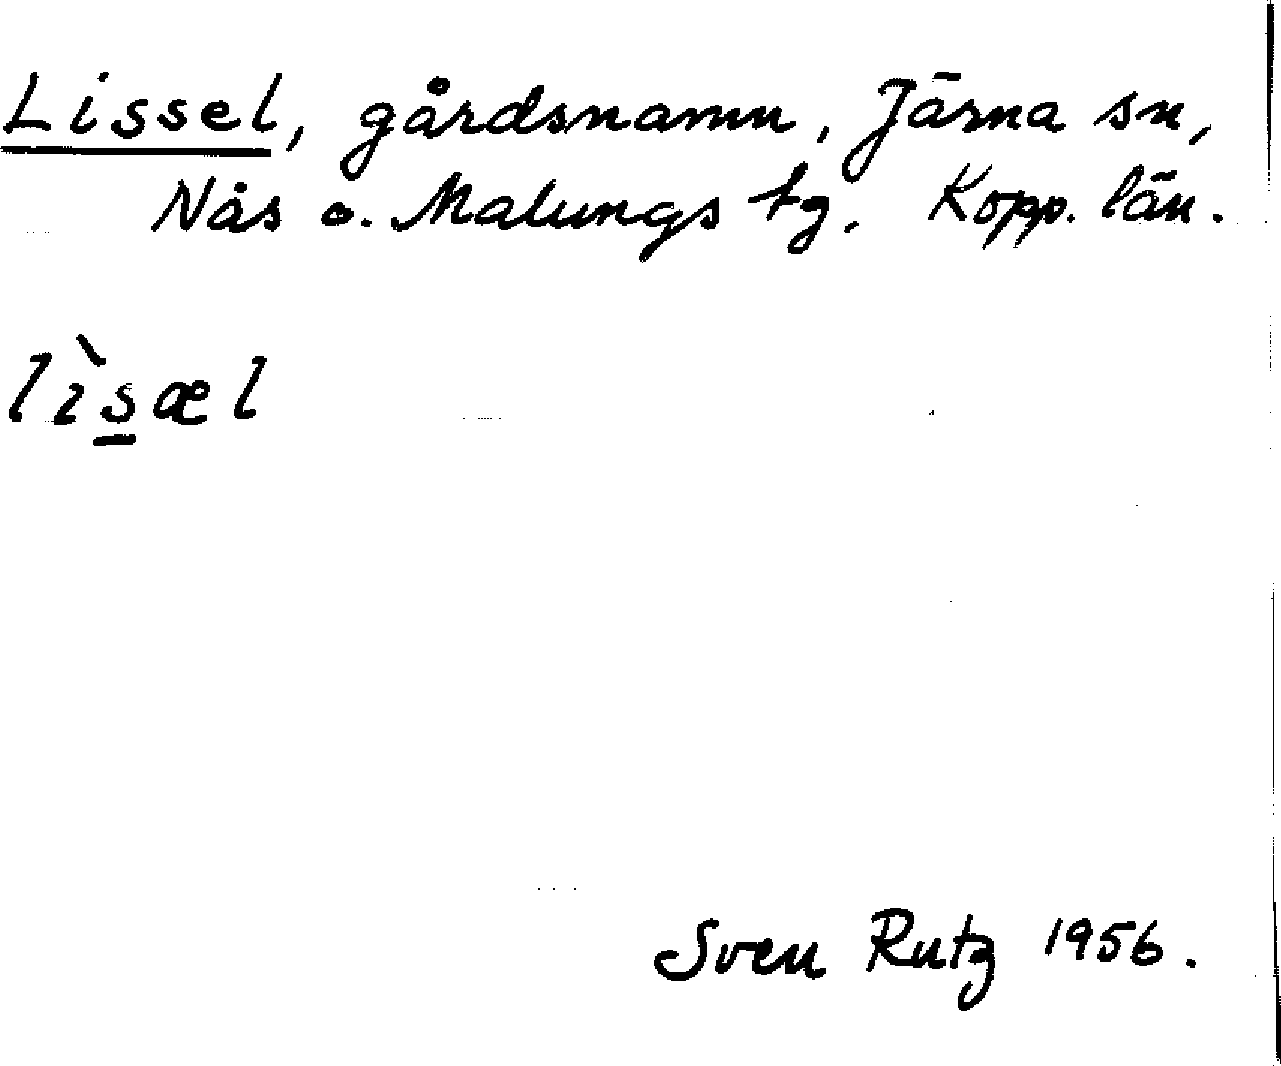 Lissel, gårdsnamn, Järna sn,
Nås o. Malungs tg. Kopp. län.
lìs̲æl
Sven Rutz 1956.